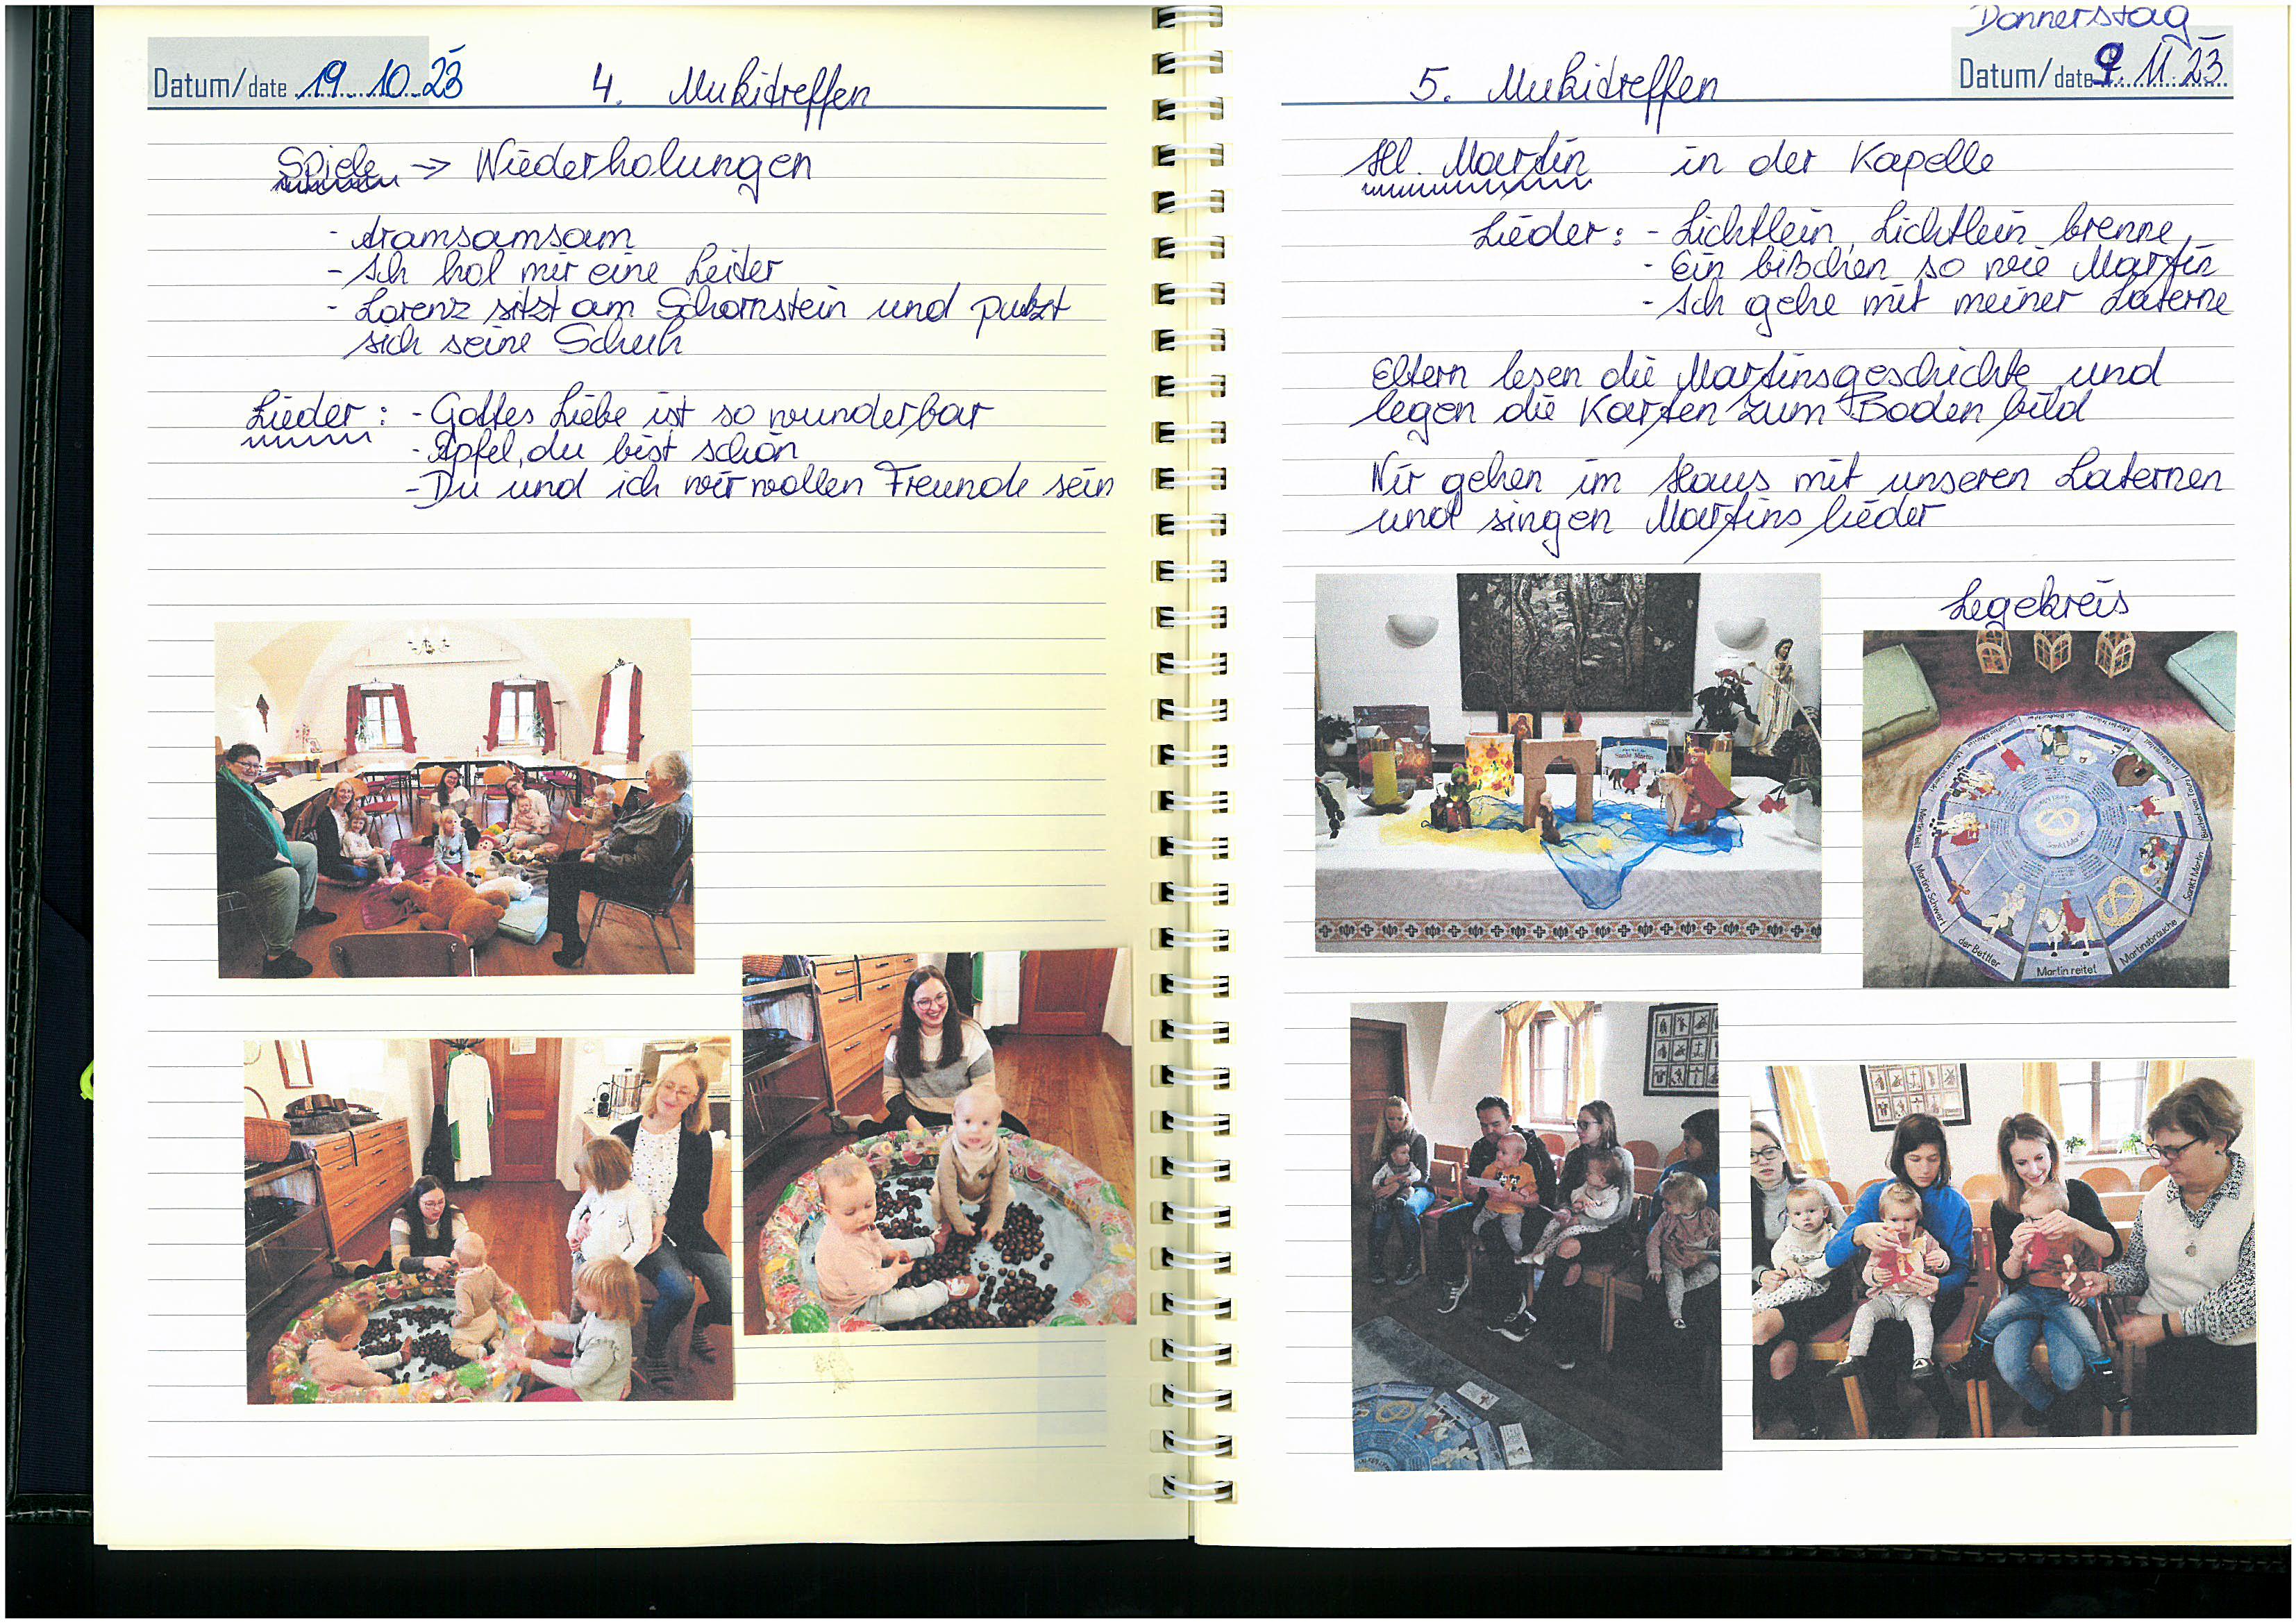 Datum/date 19. 10. 23
4. Mukitreffen
Spiele → Wiederholungen
- Aramsamsam
- Ich hol mir eine Leiter
- Lorenz sitzt am Schornstein und putzt
sich seine Schuh
Lieder: - Gottes Liebe ist so wunderbar
- Apfel, du bist schön
- Du und ich wir wollen Freunde sein
Donnerstag
Datum/date 9. 11. 23
5. Mukitreffen
Hl. Martin in der Kapelle
Lieder: - Lichtlein, Lichtlein brenne
- Ein bißchen so wie Martin
- Ich gehe mit meiner Laterne
Eltern lesen die Martinsgeschichte und
legen die Karten zum Bodenbild
Wir gehen im Haus mit unseren Laternen
und singen Martinslieder
Legekreis
Sankt Martin
Martins Schwert
der Bettler
Martin reitet
Martinsbräuche
Sankt Martin